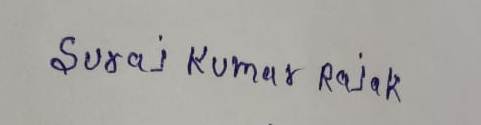 Suraj Kumar Rajak